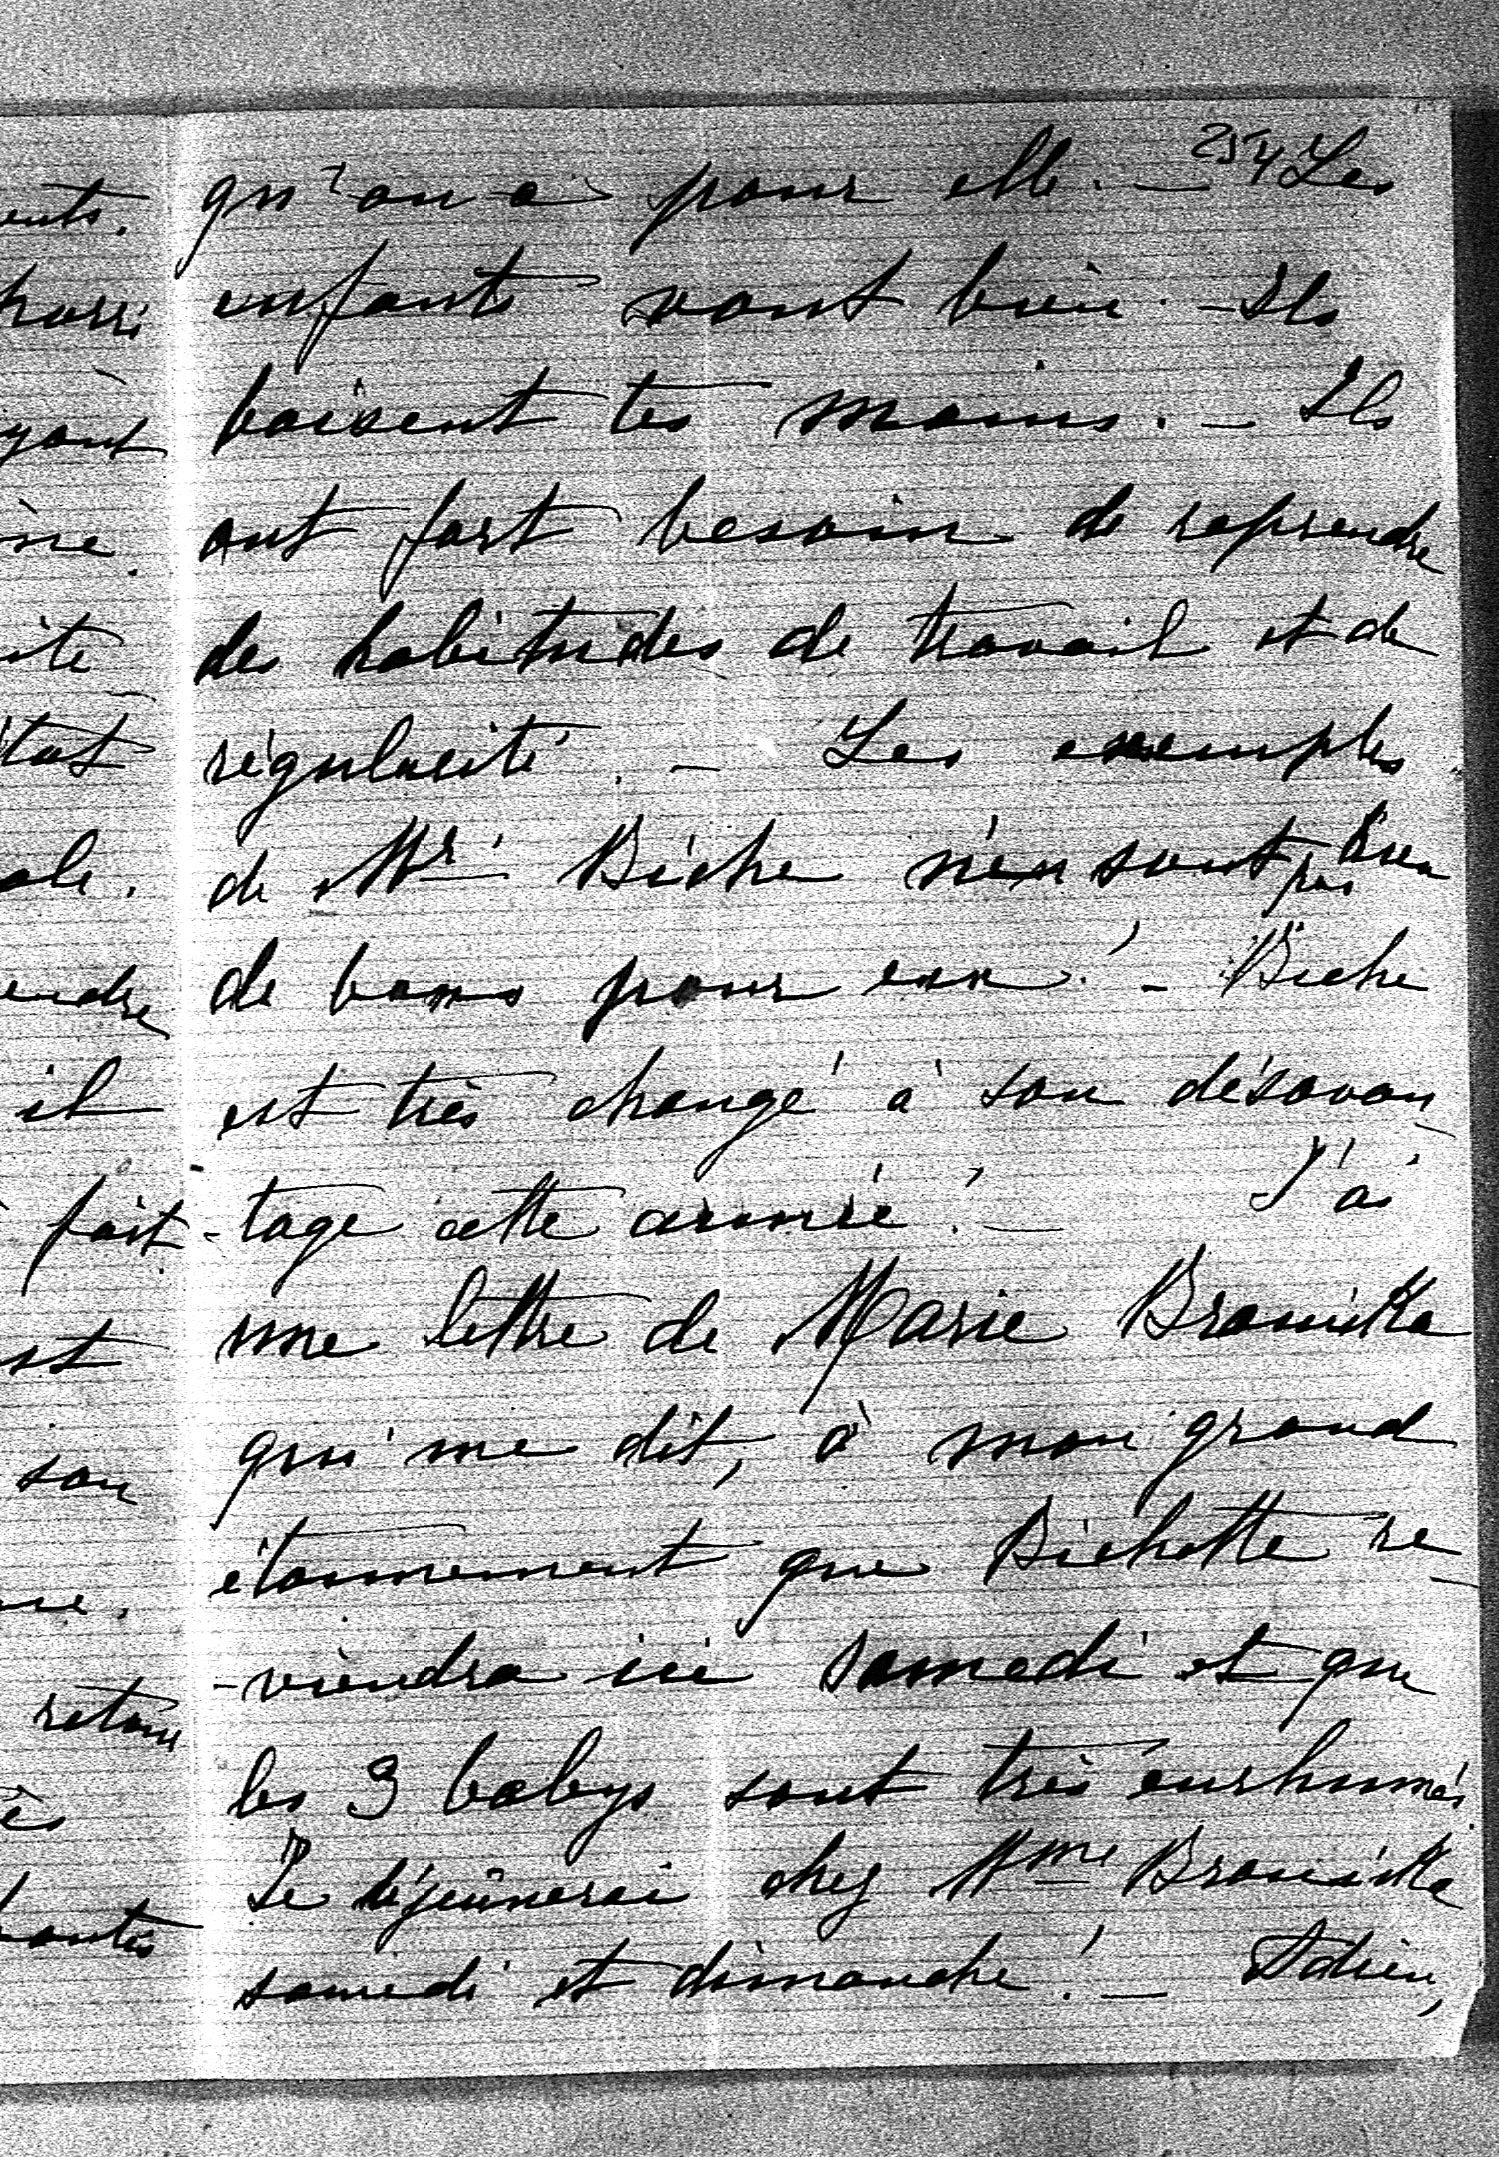 254
qu'on a pour elle. — Les
enfants vont bien. — Ils
baisent tes mains. — Ils
ont fort besoin de reprendre
des habitudes de travail et de
régularité. — Les exemples
de Mr. Biche n'en sont pas
de bons pour eux! — Biche
est très changé à son désavan
-tage cette année! — J'ai
une lettre de Marie Branicka
qui me dit, à mon grand
étonnement que Bichette re
-viendra ici samedi et que
les 3 babys sont très enrhumés.
Je déjeûnerai chez Mme Branicka
samedi et dimanche! — Adieu,